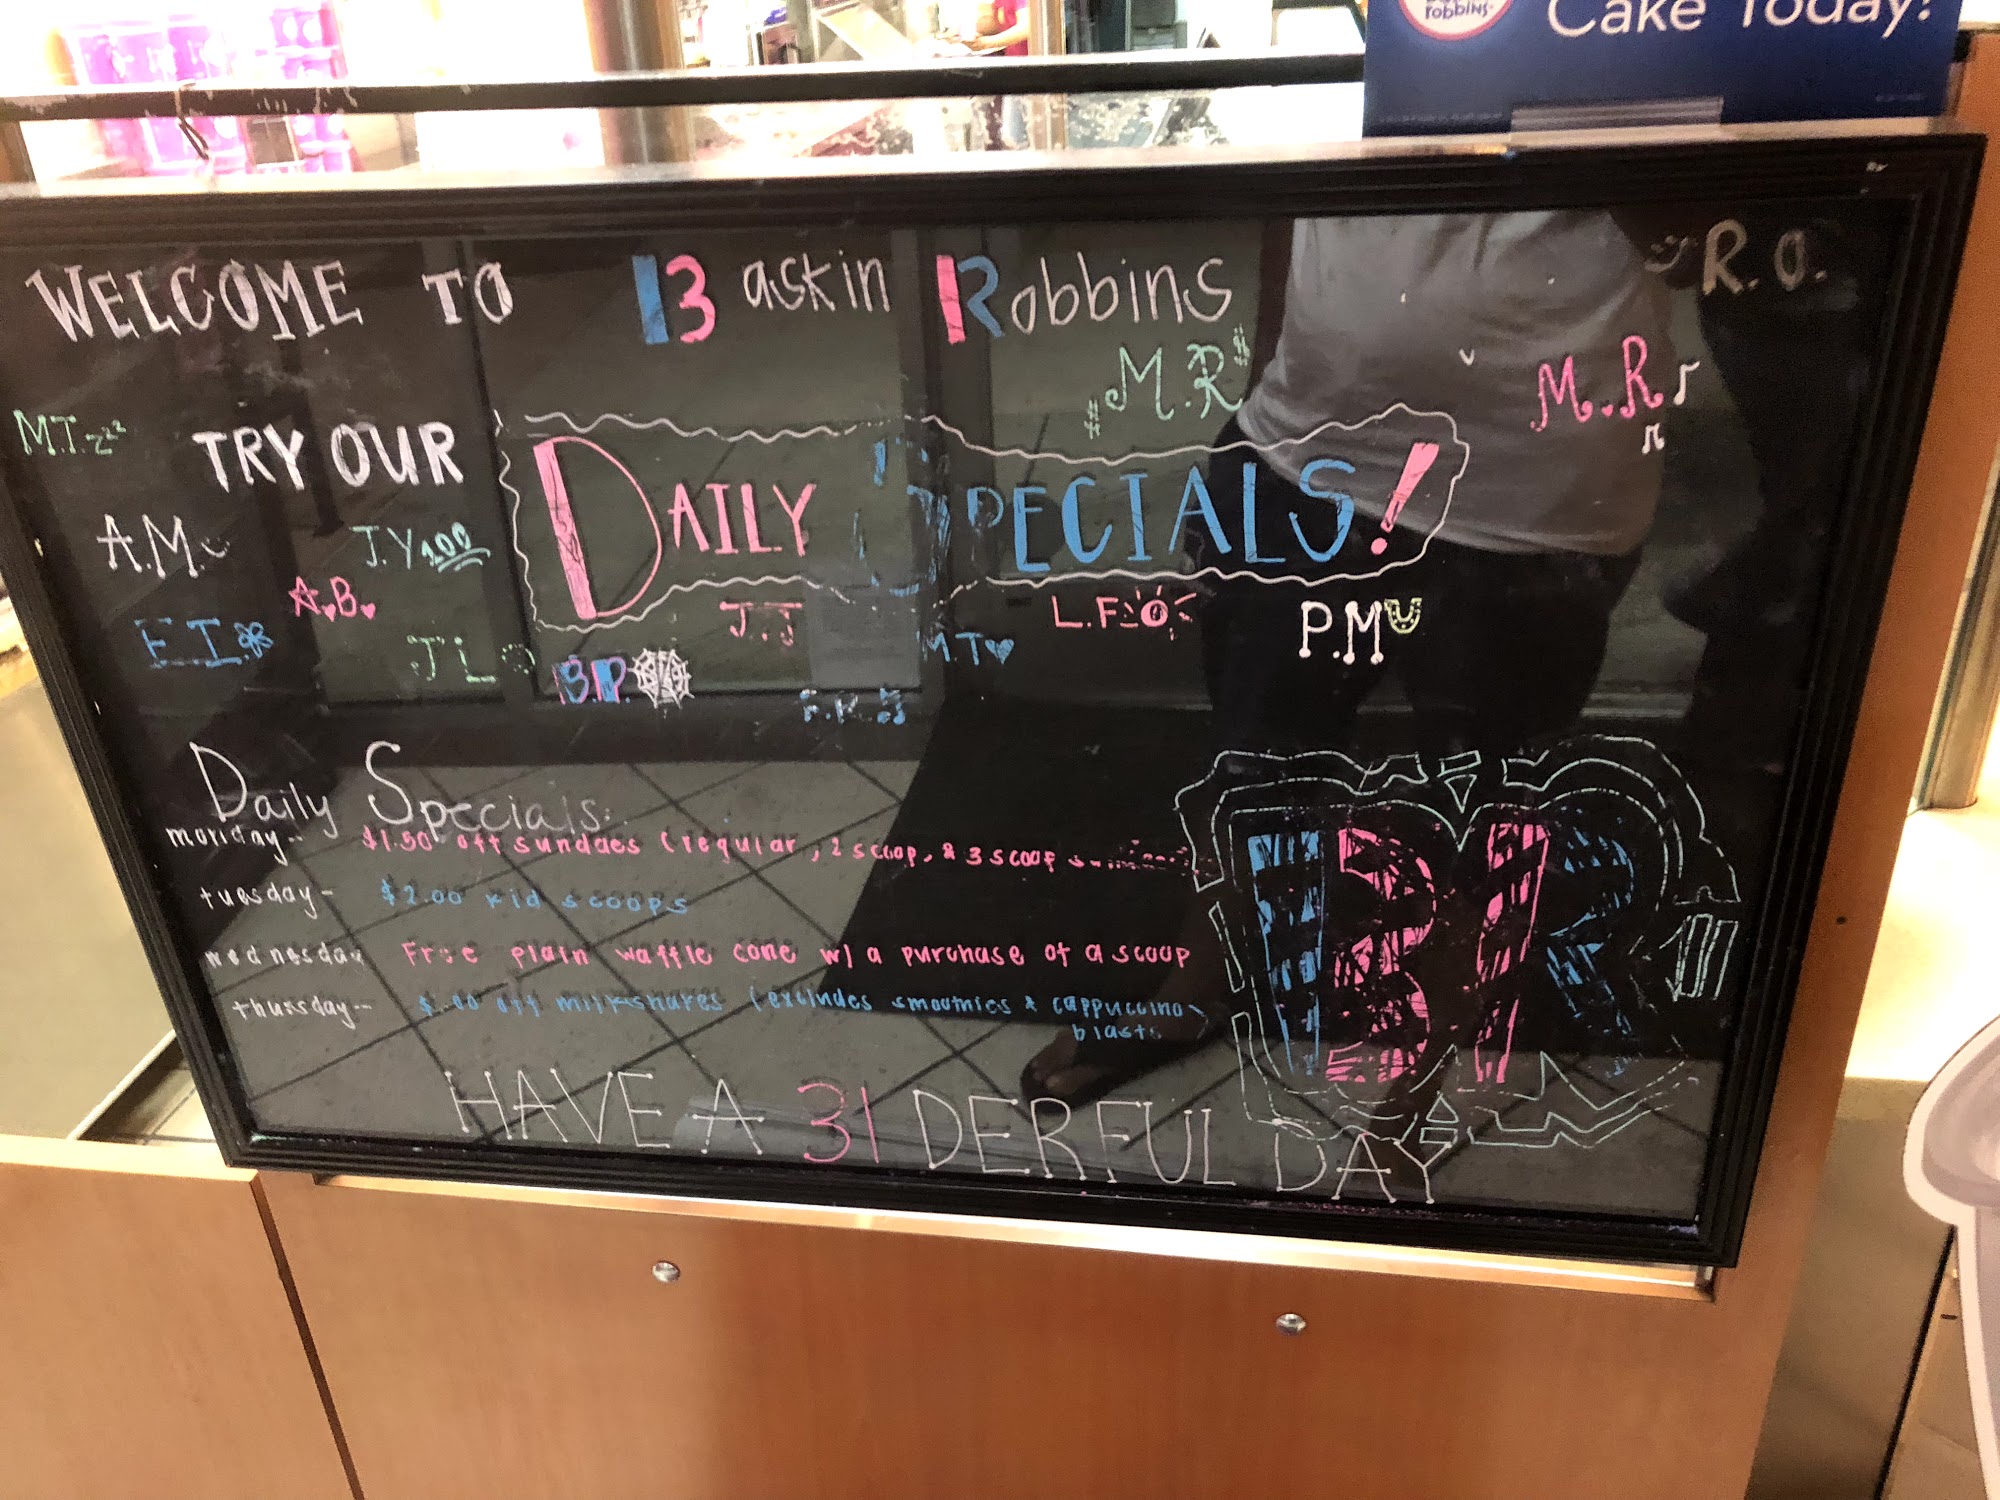 robbins
Cake Today!
WELCOME TO Baskin Robbins
R.O.
M.R
M.R
M.T. zzz
TRY OUR
DAILY SPECIALS!
A.M.
J.Y 100
A.B.
E.I.
J L
B.P.
J.J
M.T
L.F
P.M
Daily Specials:
monday-- $1.50 off sundaes (regular, 2 scoop, & 3 scoop
tuesday- $2.00 kid scoops
wednesday Free plain waffle cone w/ a purchase of a scoop
thursday-- off milkshakes (excludes smoothies & cappuccino
blasts
BR
HAVE A 31 DERFUL DAY